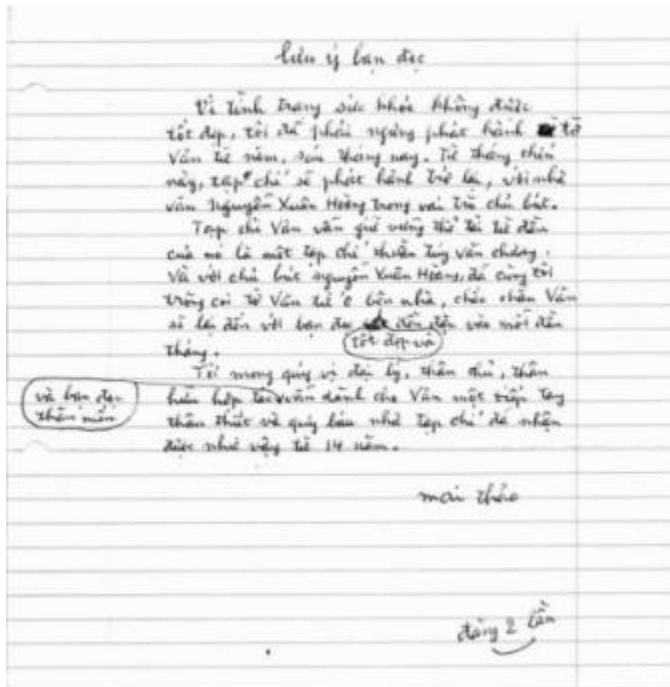 lưu ý bạn đọc
Vì tình trạng sức khỏe không được
tốt đẹp, tôi đã phải ngừng phát hành tờ
Văn từ năm, sáu tháng nay. Từ tháng chín
này, tạp chí sẽ phát hành trở lại, với nhà
văn Nguyễn Xuân Hoàng trong vai trò chủ bút.
Tạp chí Văn vẫn giữ vững thể tài từ đầu
của nó là một tạp chí thuần túy văn chương.
Và với chủ bút Nguyễn Xuân Hoàng, đã cùng tôi
trông coi tờ Văn từ ở bên nhà, chắc chắn Văn
sẽ lại đến với bạn đọc đều đặn vào mỗi đầu
tốt đẹp và
tháng.
Tôi mong quý vị đại lý, thân chủ, thân
và bạn đọc
thân mến
hữu hợp tác vẫn dành cho Văn một tiếp tay
thân thiết và quý báu như tạp chí đã nhận
được như vậy từ 14 năm.
mai thảo
đăng 2 lần